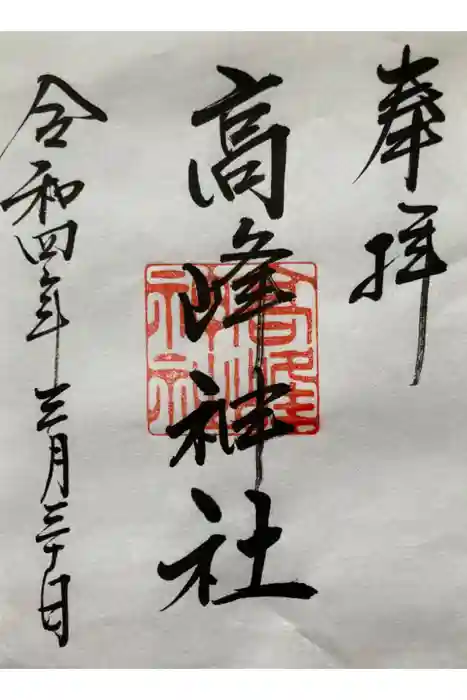 奉拝
高峰神社
令和四年三月三十日
高峰神社